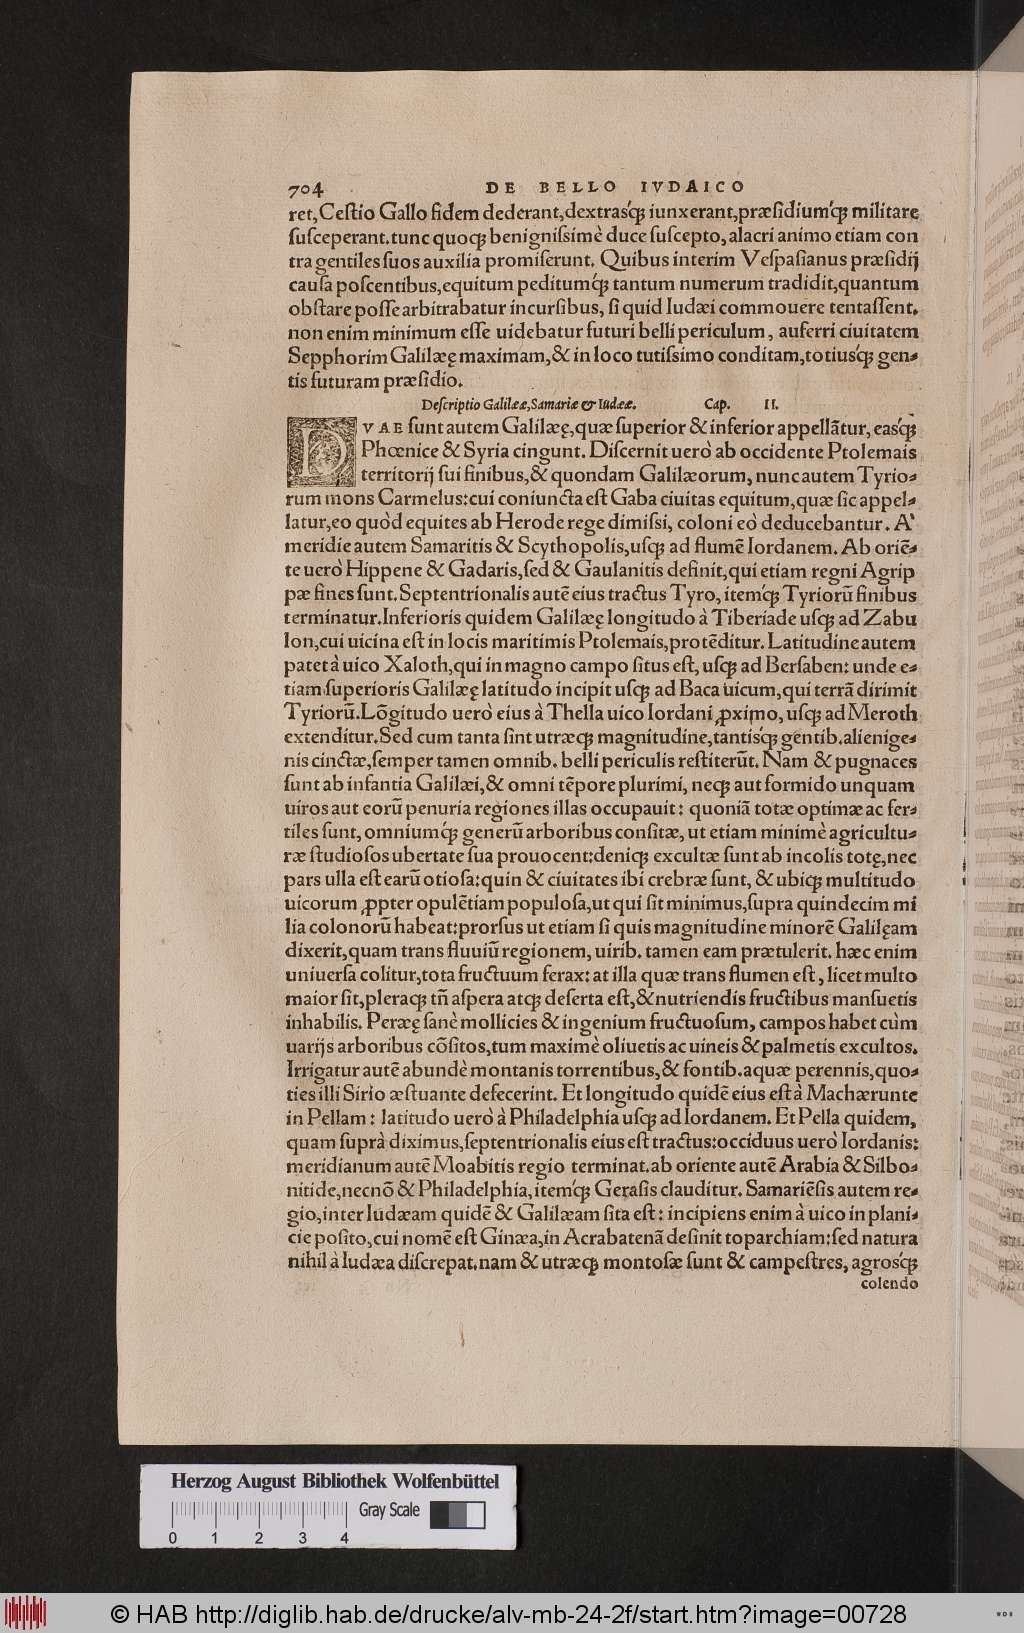 704 DE BELLO IVDAICO
ret, Ceſtio Gallo fidem dederant, dextrasq́ꝫ iunxerant, præſidiumq́ꝫ militare
ſuſceperant. tunc quoqꝫ benigniſsimè duce ſuſcepto, alacri animo etiam con
tra gentiles ſuos auxilia promiſerunt. Quibus interim Veſpaſianus præſidij
cauſa poſcentibus, equitum peditumq́ꝫ tantum numerum tradidit, quantum
obſtare poſſe arbitrabatur incurſibus, ſi quid Iudæi commouere tentaſſent.
non enim minimum eſſe uidebatur futuri belli periculum, auferri ciuitatem
Sepphorim Galilææ̨ maximam, & in loco tutiſsimo conditam, totiusq́ꝫ gen-
tis futuram præſidio.
Deſcriptio Galilææ, Samariæ & Iudææ. Cap. II.
DVAE ſunt autem Galilæę, quæ ſuperior & inferior appellãtur, easq́ꝫ
Phœnice & Syria cingunt. Diſcernit uerò ab occidente Ptolemais
territorij ſui finibus, & quondam Galilæorum, nunc autem Tyrio-
rum mons Carmelus: cui coniuncta eſt Gaba ciuitas equitum, quæ ſic appel-
latur, eo quòd equites ab Herode rege dimiſsi, coloni eò deducebantur. A`
meridie autem Samaritis & Scythopolis, uſqꝫ ad flumē Iordanem. Ab oriē-
te uerò Hippene & Gadaris, ſed & Gaulanitis definit, qui etiam regni Agrip
pæ fines ſunt. Septentrionalis autē eius tractus Tyro, itemq́ꝫ Tyriorũ finibus
terminatur. Inferioris quidem Galilæę longitudo à Tiberiade uſqꝫ ad Zabu
lon, cui uicina eſt in locis maritimis Ptolemais, protēditur. Latitudine autem
patet à uico Xaloth, qui in magno campo ſitus eſt, uſqꝫ ad Berſaben: unde e-
tiam ſuperioris Galilæę latitudo incipit uſqꝫ ad Baca uicum, qui terrã dirimit
Tyriorũ. Lõgitudo uerò eius à Thella uico Iordani ꝓximo, uſqꝫ ad Meroth
extenditur. Sed cum tanta ſint utræqꝫ magnitudine, tantisq́ꝫ gentib. alienige-
nis cinctæ, ſemper tamen omnib. belli periculis reſtiterũt. Nam & pugnaces
ſunt ab infantia Galilæi, & omni tēpore plurimi, neqꝫ aut formido unquam
uiros aut eorũ penuria regiones illas occupauit: quoniã totæ optimæ ac fer-
tiles ſunt, omniumq́ꝫ generũ arboribus conſitæ, ut etiam minimè agricultu-
ræ ſtudioſos ubertate ſua prouocent: deniqꝫ excultæ ſunt ab incolis totę, nec
pars ulla eſt earũ otioſa: quin & ciuitates ibi crebræ ſunt, & ubiqꝫ multitudo
uicorum ꝓpter opulētiam populoſa, ut qui ſit minimus, ſupra quindecim mi
lia colonorũ habeat: prorſus ut etiam ſi quis magnitudine minorē Galilęam
dixerit, quam trans fluuiũ regionem, uirib. tamen eam prætulerit. hæc enim
uniuerſa colitur, tota fructuum ferax: at illa quæ trans flumen eſt, licet multo
maior ſit, pleraqꝫ tñ aſpera atqꝫ deſerta eſt, & nutriendis fructibus manſuetis
inhabilis. Peræę ſanè mollicies & ingenium fructuoſum, campos habet cùm
uarijs arboribus cõſitos, tum maximè oliuetis ac uineis & palmetis excultos.
Irrigatur autē abundè montanis torrentibus, & fontib. aquæ perennis, quo-
ties illi Sirio æſtuante defecerint. Et longitudo quidē eius eſt à Machærunte
in Pellam: latitudo uerò à Philadelphia uſqꝫ ad Iordanem. Et Pella quidem,
quam ſuprà diximus, ſeptentrionalis eius eſt tractus: occiduus uerò Iordanis:
meridianum autē Moabitis regio terminat. ab oriente autē Arabia & Silbo-
nitide, necnõ & Philadelphia, itemq́ꝫ Geraſis clauditur. Samariēſis autem re-
gio, inter Iudæam quidē & Galilæam ſita eſt: incipiens enim à uico in plani-
cie poſito, cui nomē eſt Ginæa, in Acrabatenã deſinit toparchiam: ſed natura
nihil à Iudæa diſcrepat. nam & utræqꝫ montoſæ ſunt & campeſtres, agrosq́ꝫ
colendo
Herzog August Bibliothek Wolfenbüttel
0 1 2 3 4
Gray Scale
© HAB http://diglib.hab.de/drucke/alv-mb-24-2f/start.htm?image=00728